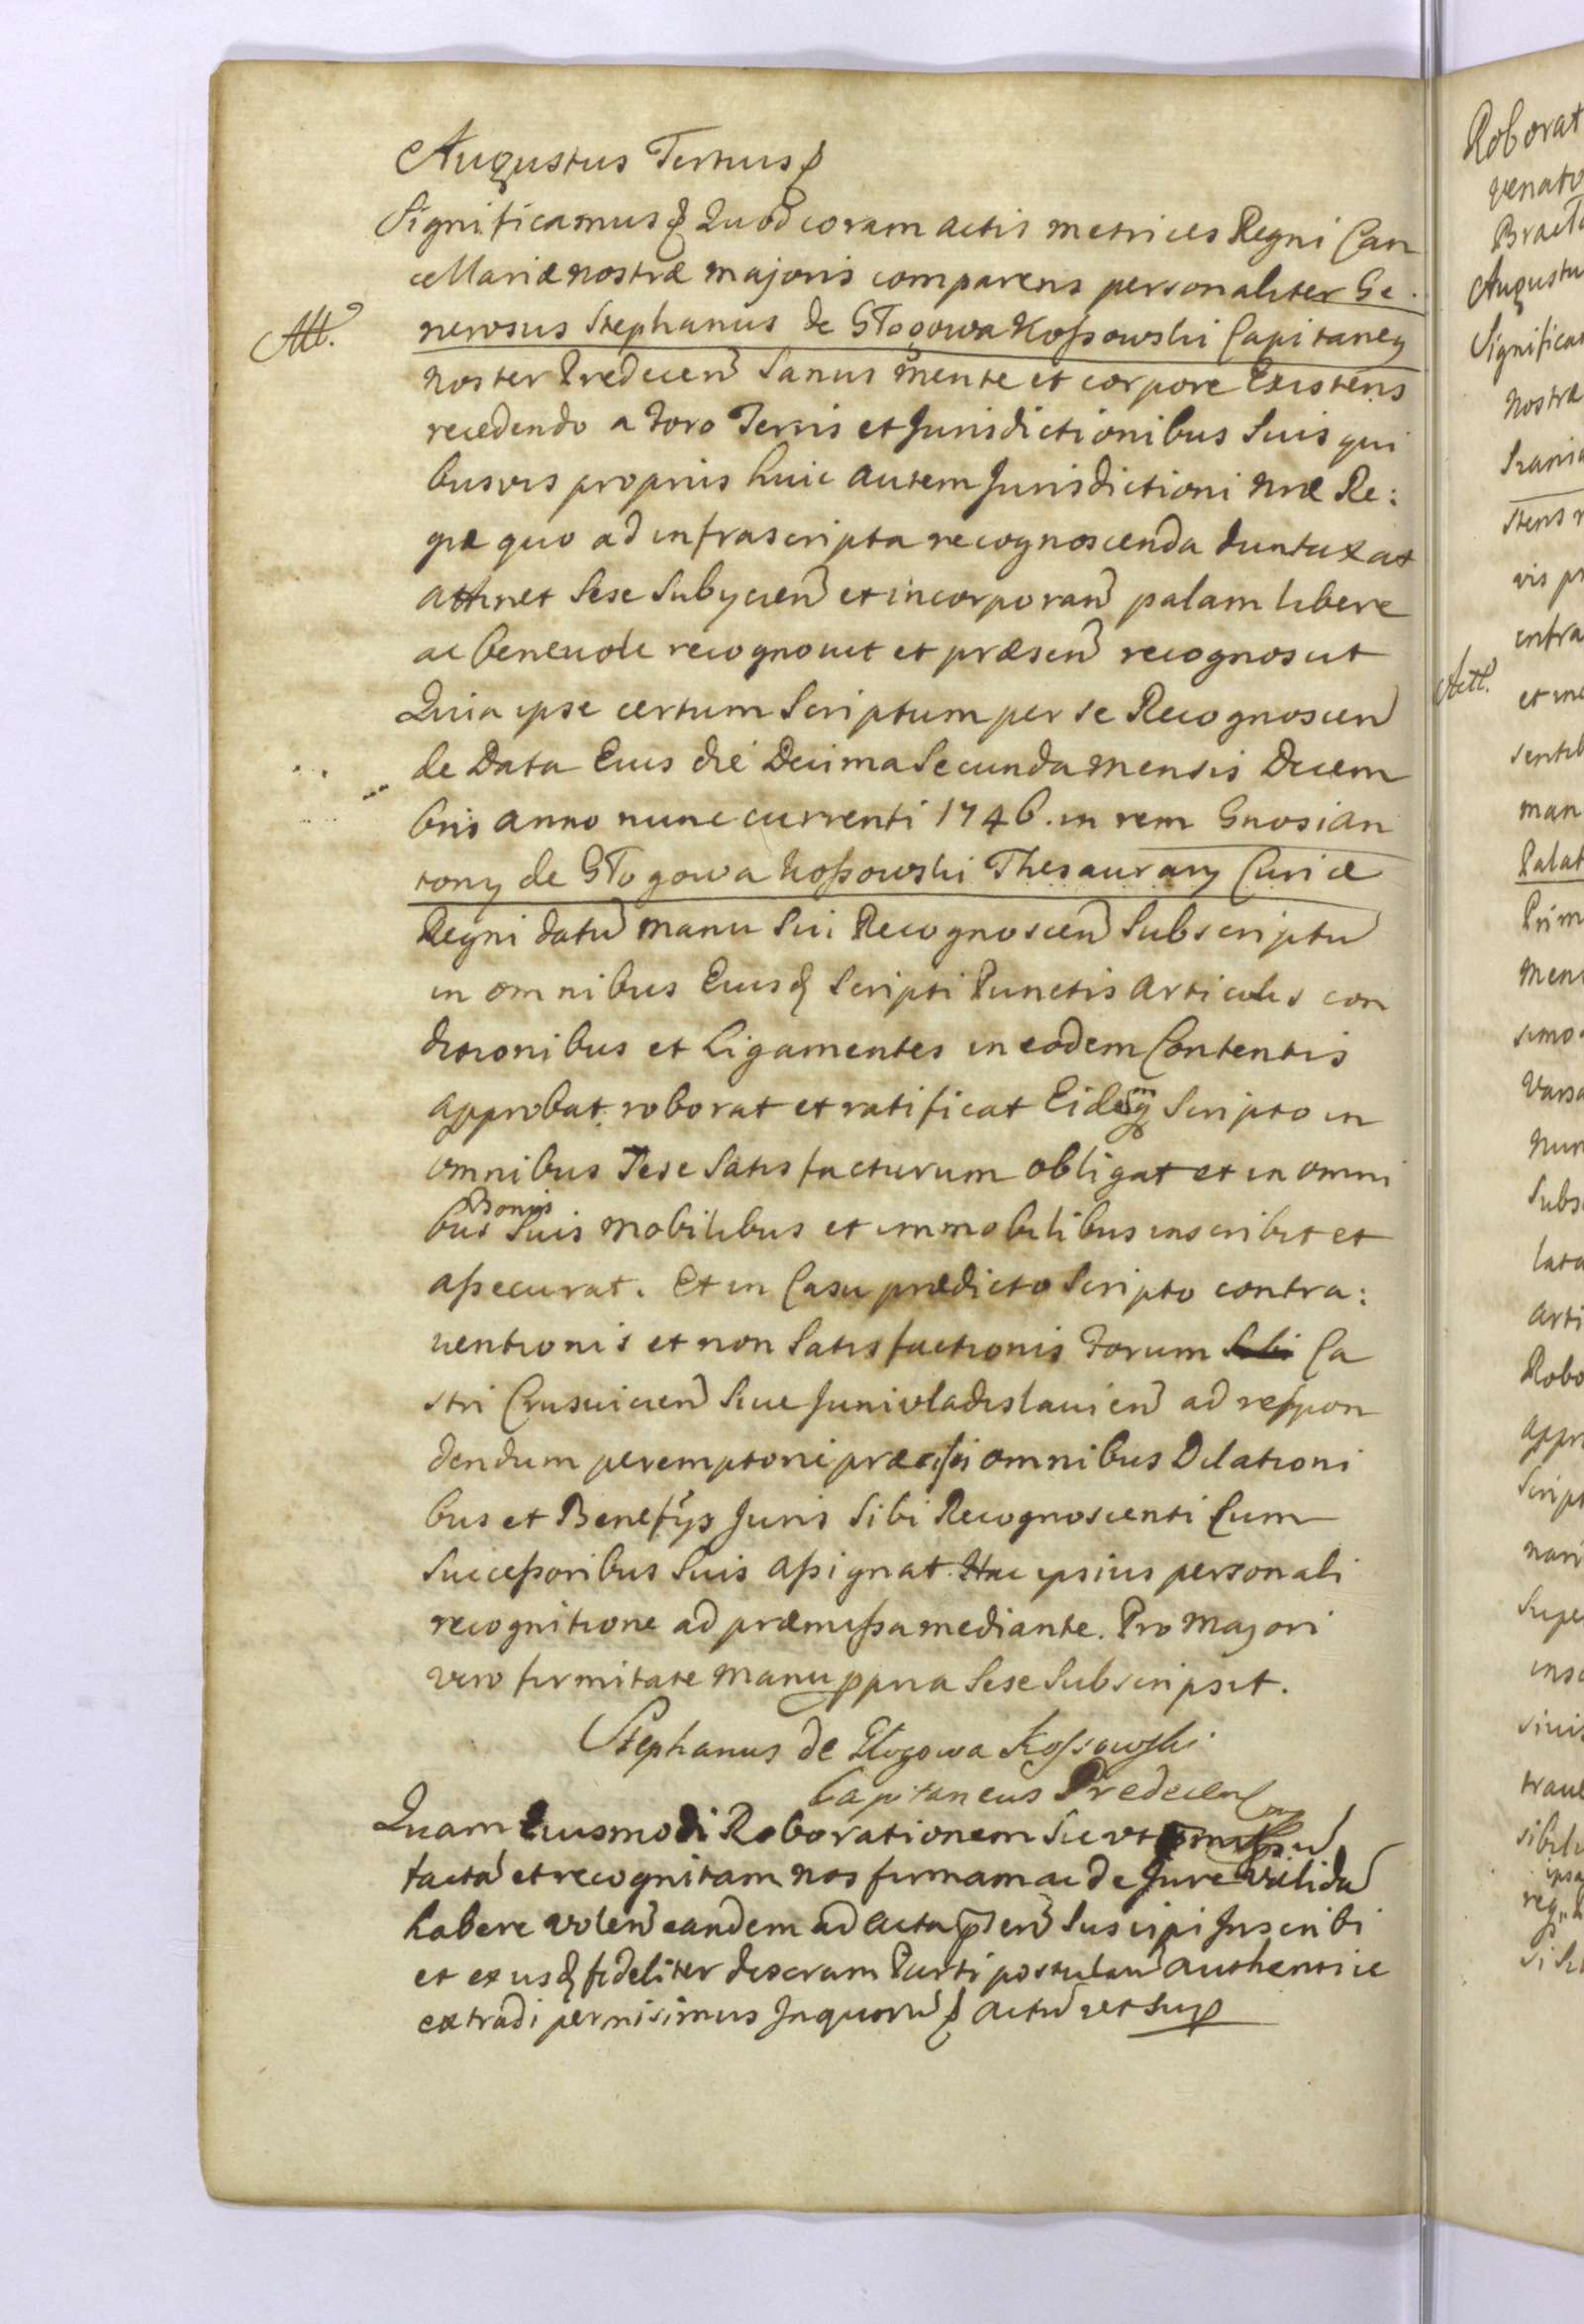 Augustus Tertius &
Significamus & Quod coram actis metrices Regni Can
cellariæ nostræ majoris comparens personaliter Ge.
Att.
nerosus Stephanus de Głogowa Kossowski Capitaneg
noster Predecen Sanus mente et corpore Existens
recedendo a Foro Terris et Jurisdictionibus Suis qui
busvis propriis huic autem Jurisdictioni nræ Re:
giæ quo ad infrascripta recognoscenda duntaxat
attinet Sese Subycien et incorporan palam libere
ac benevole recognovit et præsen recognoscit
Quia ipse certum Scriptum per se Recognoscen
de Data Eius die Decima Secunda mensis Decem
bris anno nunc currenti 1746. in rem Gnosi An
tony de Głogowa Kossowski Thesaurary Curiæ
Regni datu manu Sui Recognoscen Subscriptu
in omnibus Eiusq Scripti Punctis Articulis con
ditionibus et Ligamentes in eodem Contentis
approbat roborat et ratificat Eidemq Scripto in
omnibus Sese Satisfacturum obligat et in omni
bus Bonis Suis mobilibus et immobilibus inscribit et
assecurat. Et in Casu prædicto Scripto contra:
ventionis et non Satisfactionis Forum Sibi Ca
stri Crusvicien Sive Junivladislavien ad respon
dendum peremptorie præcisis omnibus Dilationi
bus et Benefys Juris Sibi Recognoscenti Cum
Successoribus Suis assignat. Hac ipsius personali
recognitione ad præmissa mediante. Pro Majori
vero firmitate manu ppria Sese Subscripsit.
Stephanus de Głogowa Kossowski
Capitaneus Predecen
Quam Eiusmodi Roborationem Sic ut
facta et recognitam nos firmam ac de Jure valida
habere volen eandem ad acta psen Suscipi Inscribi
et ex usq fideliter descram Parti postulan authentice
extradi permisimus In quoru & actu ut Sup
Roborat
venato
Bract
Augustu
Significa
nostræ
Stens r
vis pr
infra
Att.
et in
sentib
man
Palat
Prim
mens
simo
Varsa
nun
Subs
lata
arti
Robo
appr
Script
nari
Supe
insc